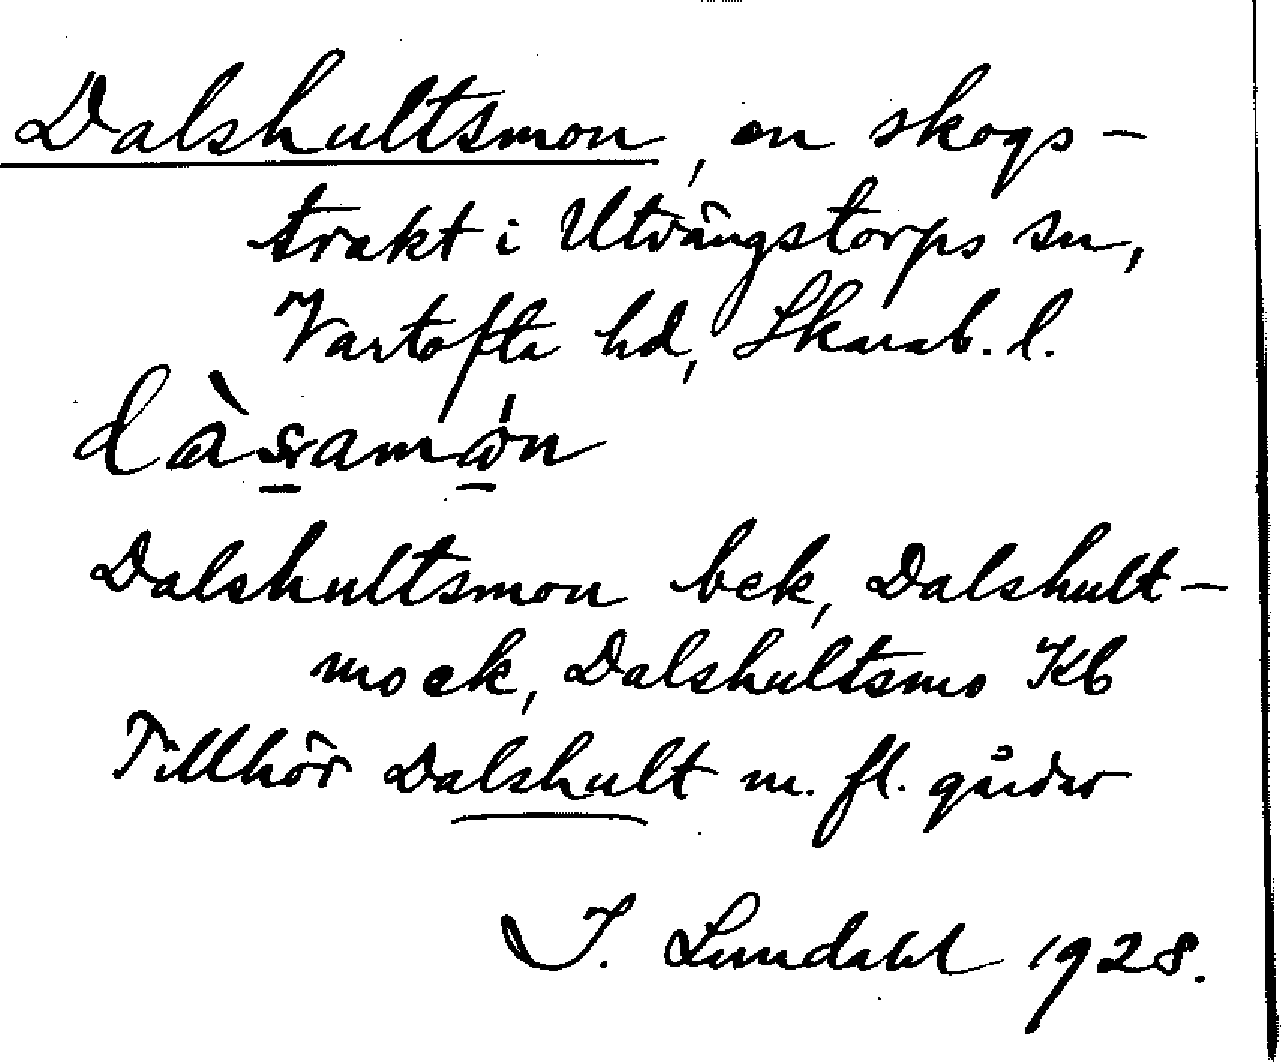 Dalshultsmon, en skogs-
trakt i Utvängstorps sn,
Vartofta hd, Skarab. l.
Dalshultsmon bek, Dalshult-
mo ek, Dalshultsmo Kb
Tillhör Dalshult m. fl. gårdar
I. Lundahl 1928.